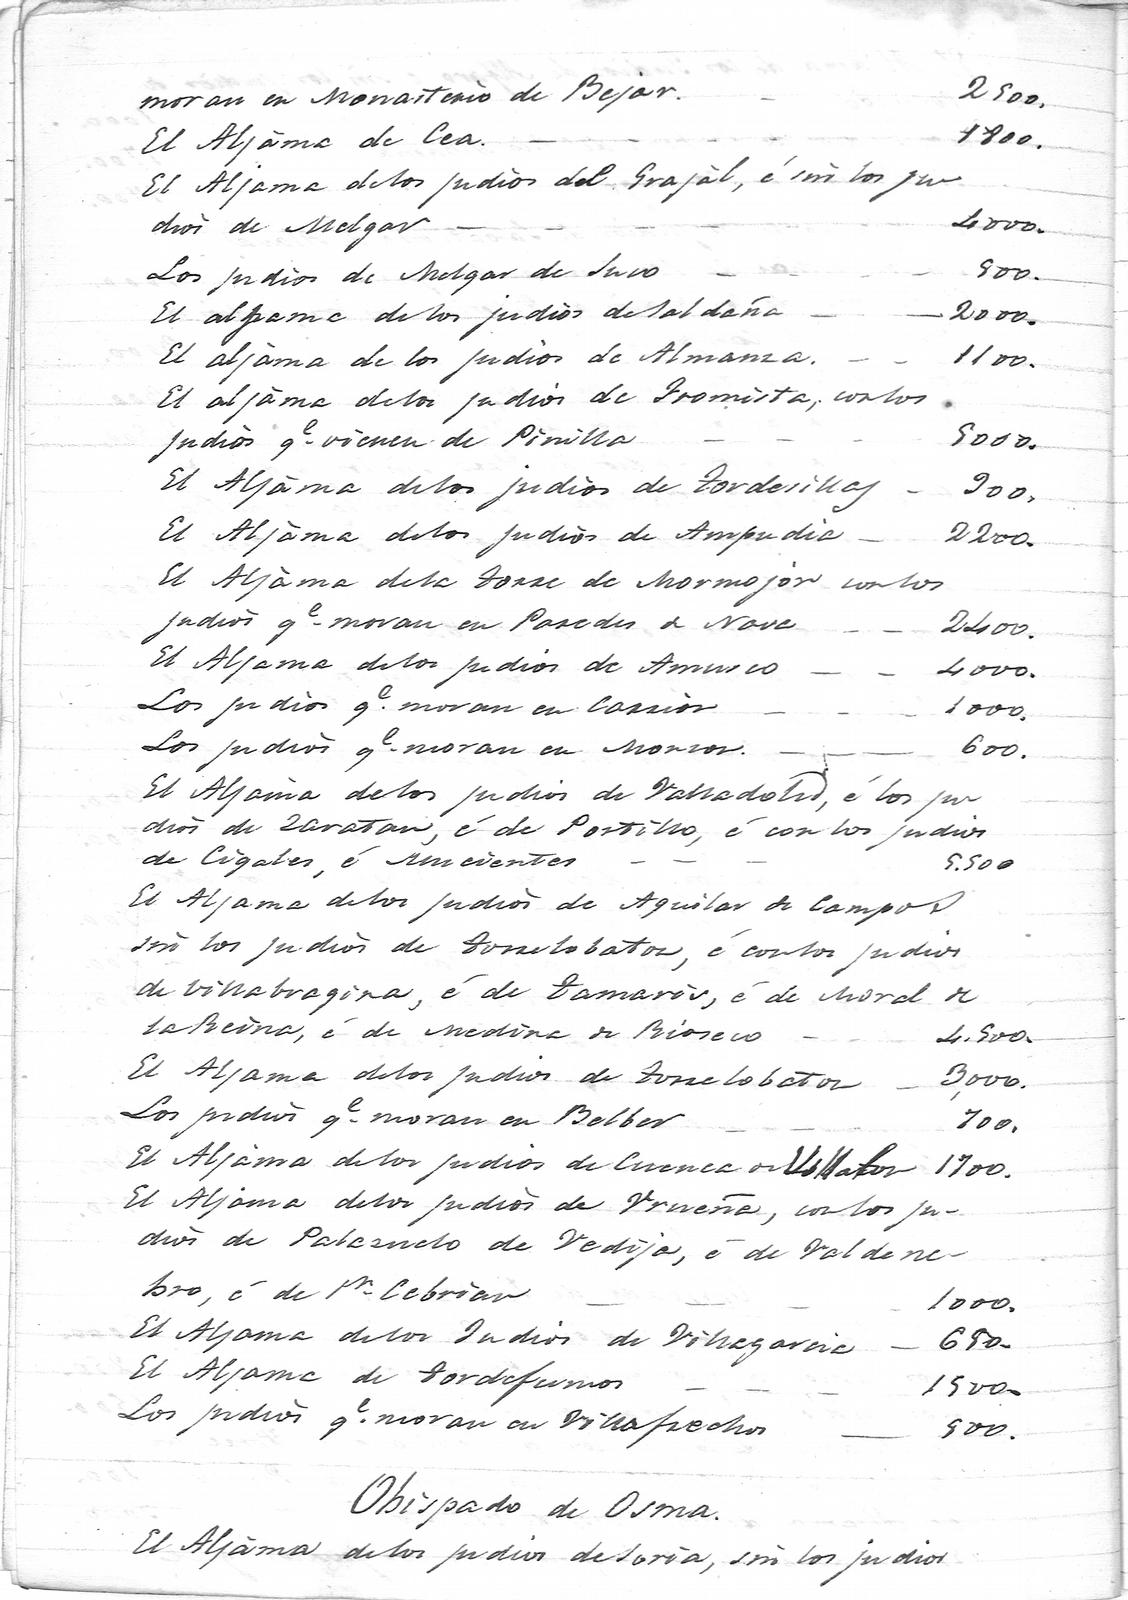 moran en Monasterio de Bejar. - 2500.
El Aljama de Cea. - - - - 1800.
El Aljama de los judios del Grajàl, é sin los ju
dios de Melgar - - - - - 4000.
Los judios de Melgar de Suso - - - - 500.
El aljama de los judios de Saldaña - - 2000.
El aljàma de los judios de Almanza. - - 1100.
El aljàma de los judios de Fromista, con los
judiòs qe. vienen de Pinilla - - - 5000.
El Aljàma de los judios de Tordesillas - 900.
El Aljàma de los judios de Ampudia - 2200.
El Aljàma de la Torre de Mormojòn con los
judiòs qe. moran en Paredes de Nava - - 2400.
El Aljama de los judios de Amusco - - 4000.
Los judios qe. moran en Carriòn - - - 1000.
Los judiòs qe. moran en Monzon. - - 600.
El Aljama de los judios de Valladolid, é los ju
diòs de Zaratan, é de Portillo, é con los judios
de Cigales, é Mucientes - - - 5.500
El Aljama de los judiòs de Aguilar de Campos
sin los judiòs de Torrelobaton, é con los judios
de Villabragina, é de Tamaris, é de Moral de
la Reina, é de Medina de Rioseco - - 4.500.
El Aljama de los judios de Torrelobaton - 3,000.
Los judiòs qe. moran en Belber - - - 700.
El Aljàma de los judios de Cuenca de Villalon 1700.
El Aljama de los judiòs de Vrueña, con los ju-
diòs de Palazuelo de Vedija, é de Valdene-
bro, é de Sn. Cebrian - - - - 1000.
El Aljama de los Judios de Villagarcia - 650.
El Aljama de Tordefumos - - - 1500.
Los judiòs qe. moran en Villafrechos - 500.
Obispado de Osma.
El Aljàma de los judios de Soria, sin los judios